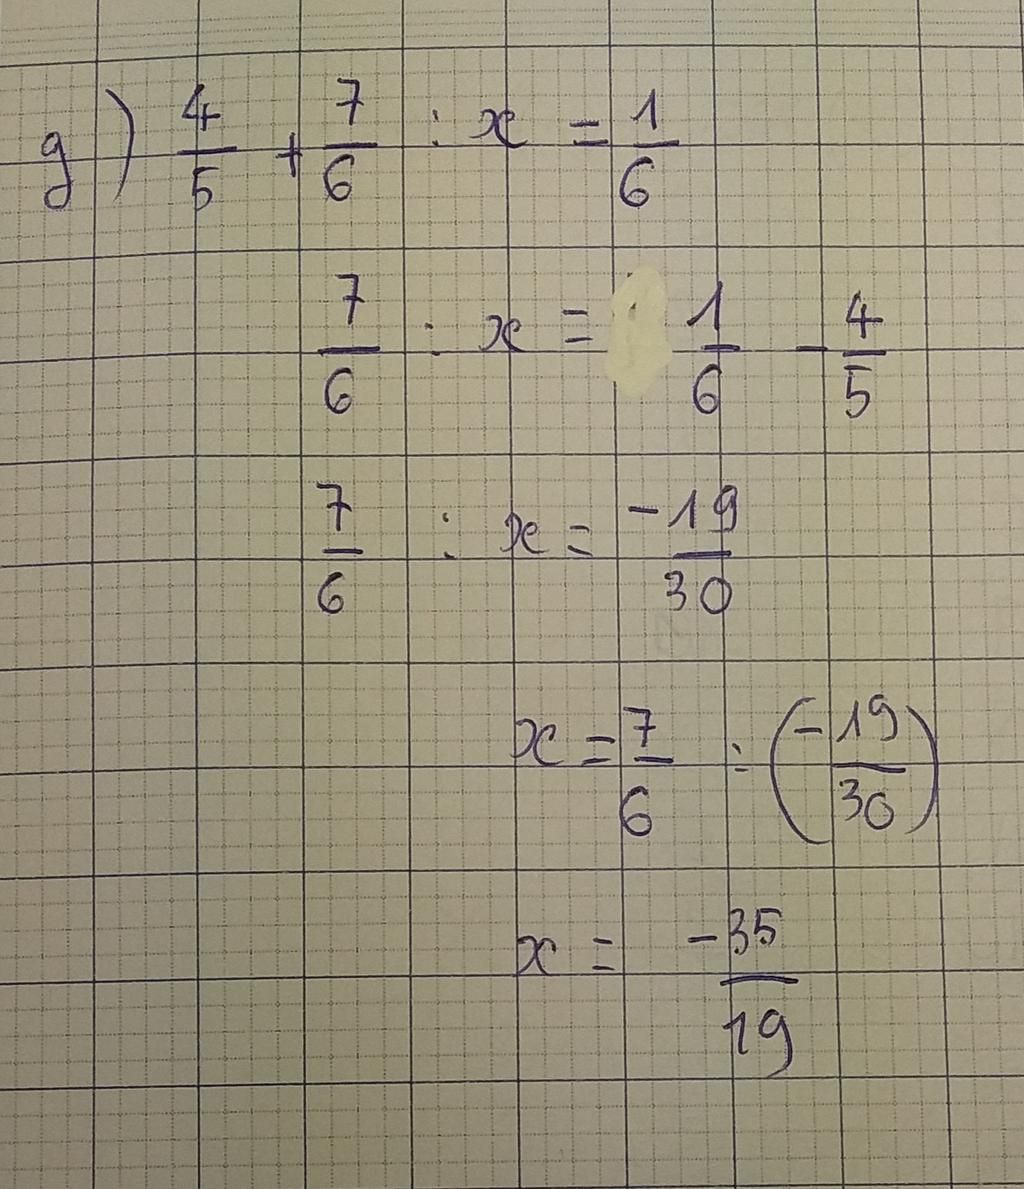 g) 4/5 + 7/6 : x = 1/6
7/6 : x = 1/6 - 4/5
7/6 : x = -19/30
x = 7/6 : (-19/30)
x = -35/19